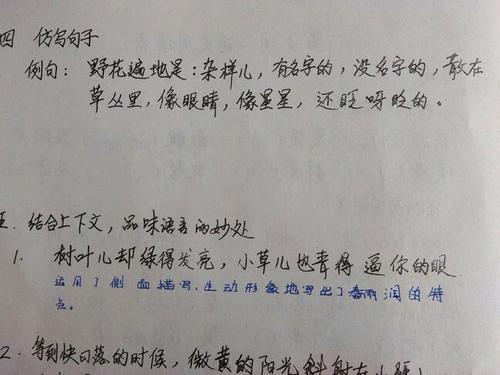 四 仿写句子
例句：野花遍地是：杂样儿，有名字的，没名字的，散在
草丛里，像眼睛，像星星，还眨呀眨的。
五. 结合上下文，品味语言的妙处
1. 树叶儿却绿得发亮，小草儿也青得逼你的眼
运用了侧面描写，生动形象地写出了春雨润的特
点。
2. 等到快日落的时候，微黄的阳光斜射在